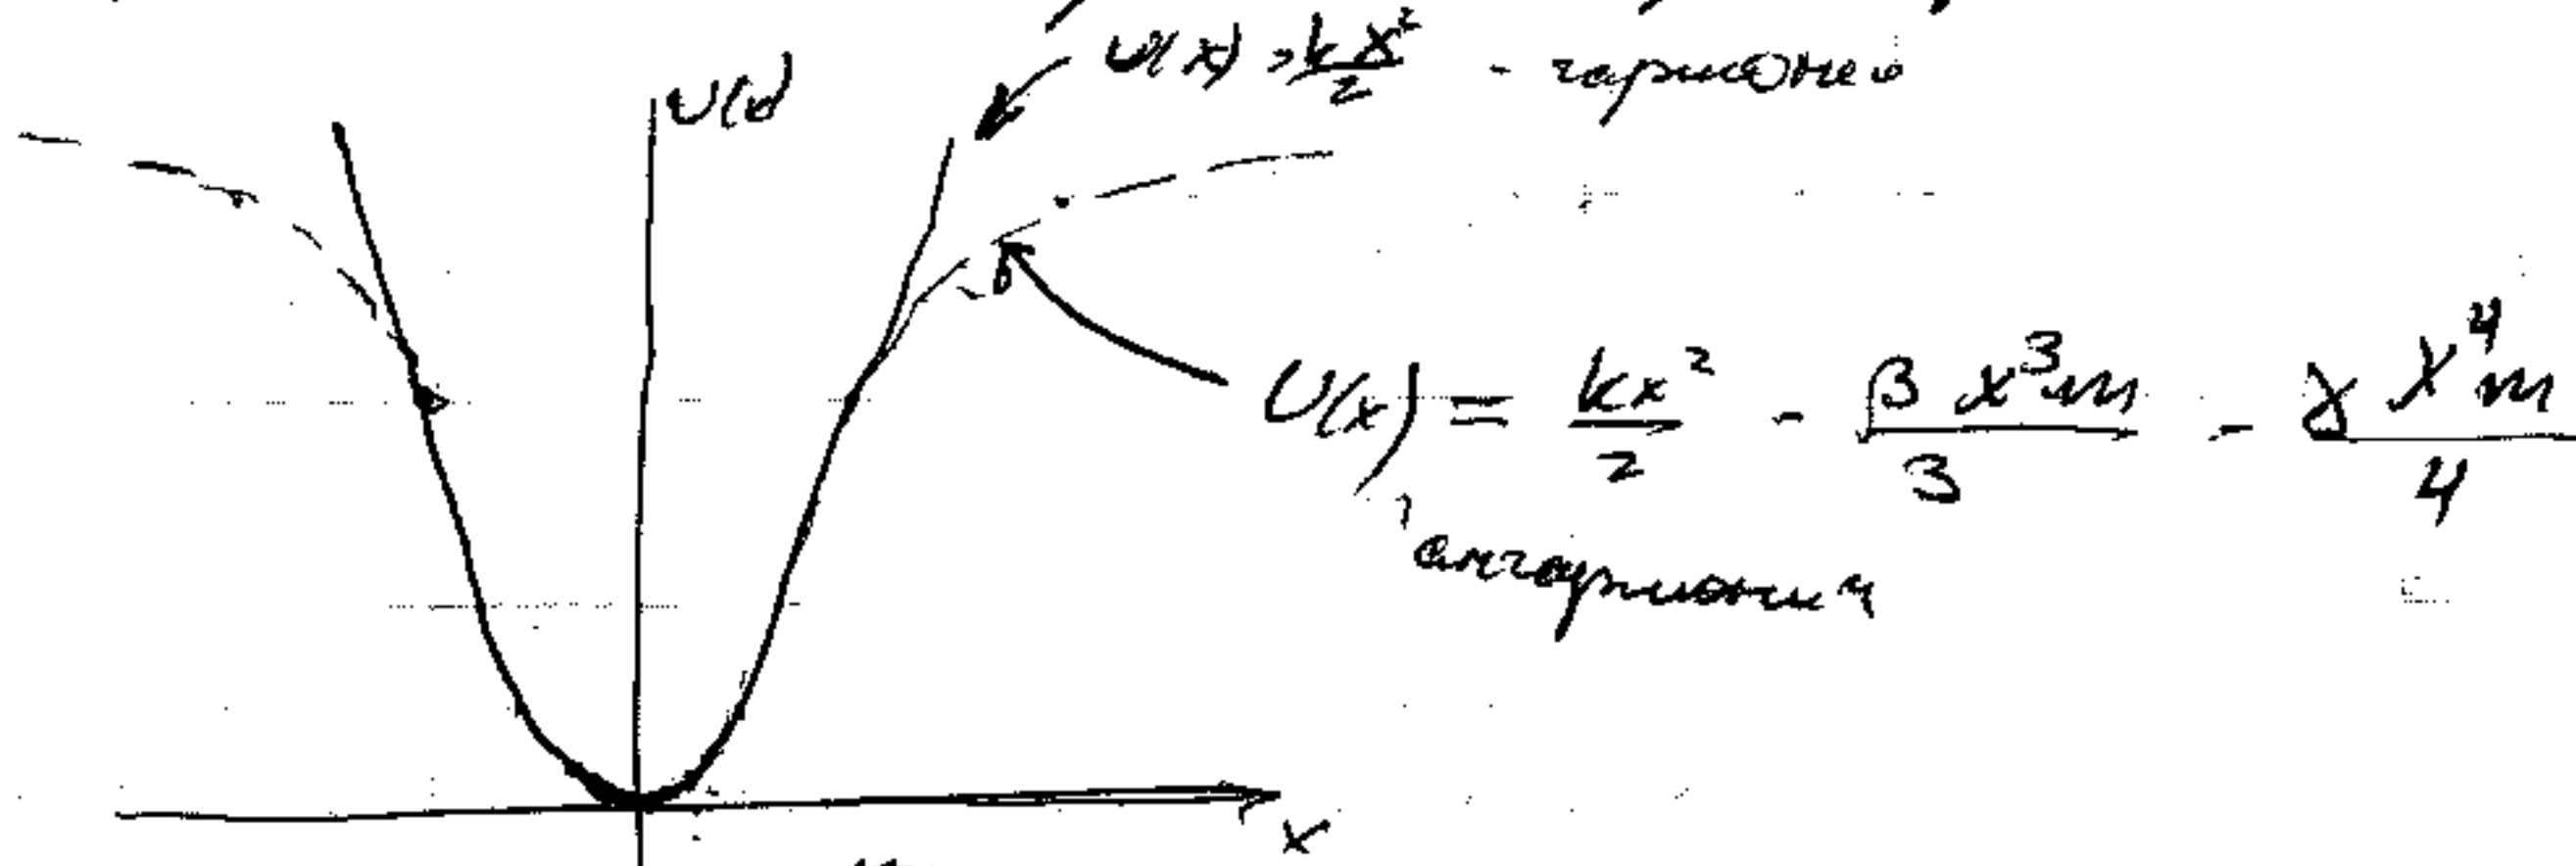 U(x) = kx²/2 - гармонич
U(x)
U(x) = kx²/2 - βx³m/3 - γx⁴m/4
ангармонич
x